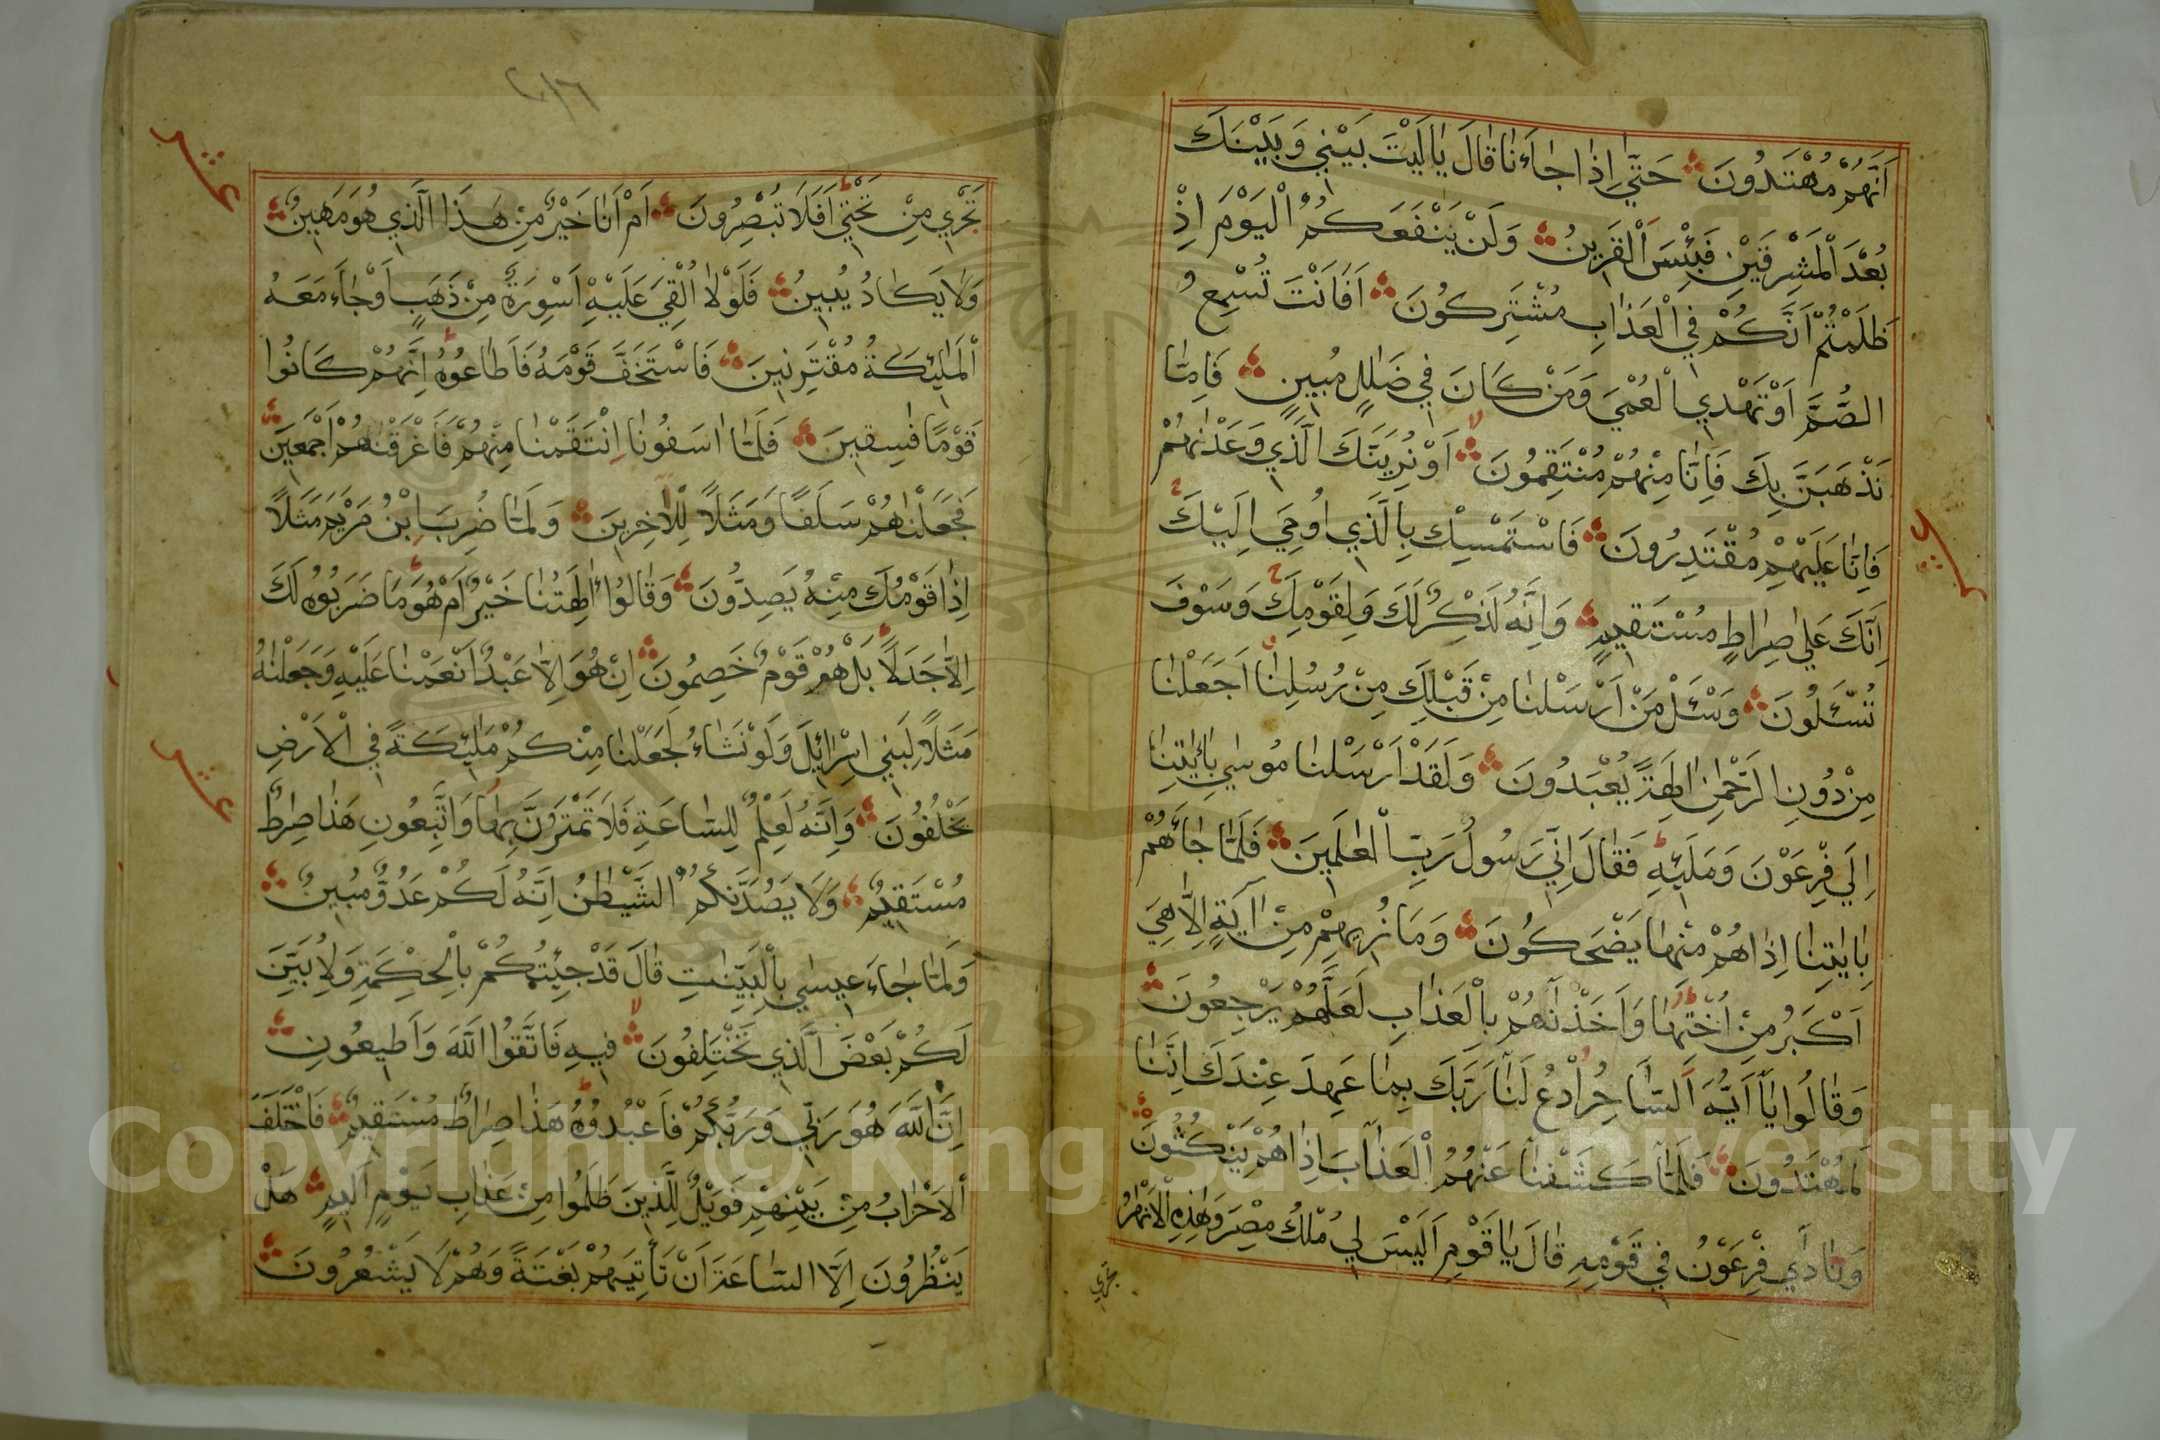 اَنَّهُمْ مُهْتَدُونَ حَتّٰي اِذٰا جٰاءَنٰا قٰالَ يٰا لَيْتَ بَيْنِي وَبَيْنَكَ
بُعْدَ الْمَشْرِقَيْنِ فَبِئْسَ الْقَرِينُ وَلَنْ يَنْفَعَكُمُ الْيَوْمَ اِذْ
ظَلَمْتُمْ اَنَّكُمْ فِي الْعَذٰابِ مُشْتَرِكُونَ اَفَاَنْتَ تُسْمِعُ
الصُّمَّ اَوْ تَهْدِي الْعُمْيَ وَمَنْ كَانَ فِي ضَلٰلٍ مُبِينٍ فَاِمّٰا
نَذْهَبَنَّ بِكَ فَاِنّٰا مِنْهُمْ مُنْتَقِمُونَ اَوْ نُرِيَنَّكَ الَّذِي وَعَدْنٰهُمْ
فَاِنّٰا عَلَيْهِمْ مُقْتَدِرُونَ فَاسْتَمْسِكْ بِالَّذِي اُوحِيَ اِلَيْكَ
اِنَّكَ عَلٰي صِرٰاطٍ مُسْتَقِيمٍ وَاِنَّهُ لَذِكْرٌ لَكَ وَلِقَوْمِكَ وَسَوْفَ
تُسْئَلُونَ وَسْئَلْ مَنْ اَرْسَلْنٰا مِنْ قَبْلِكَ مِنْ رُسُلِنٰا اَجَعَلْنٰا
مِنْ دُونِ الرَّحْمٰنِ اٰلِهَةً يُعْبَدُونَ وَلَقَدْ اَرْسَلْنٰا مُوسٰي بِاٰيٰتِنٰا
اِلٰي فِرْعَوْنَ وَمَلَئِهِ فَقٰالَ اِنِّي رَسُولُ رَبِّ الْعٰلَمِينَ فَلَمّٰا جٰاءَهُمْ
بِاٰيٰتِنٰا اِذٰا هُمْ مِنْهٰا يَضْحَكُونَ وَمَا نُرِيهِمْ مِنْ اٰيَةٍ اِلّٰا هِيَ
اَكْبَرُ مِنْ اُخْتِهٰا وَاَخَذْنٰهُمْ بِالْعَذٰابِ لَعَلَّهُمْ يَرْجِعُونَ
وَقٰالُوا يٰا اَيُّهَ السّٰاحِرُ ادْعُ لَنٰا رَبَّكَ بِمٰا عَهِدَ عِنْدَكَ اِنَّنٰا
لَمُهْتَدُونَ فَلَمّٰا كَشَفْنٰا عَنْهُمُ الْعَذٰابَ اِذٰا هُمْ يَنْكُثُونَ
وَنٰادٰي فِرْعَوْنُ فِي قَوْمِهِ قٰالَ يٰا قَوْمِ اَلَيْسَ لِي مُلْكُ مِصْرَ وَهٰذِهِ الْاَنْهٰرُ
تجري
٢١٦
عشر
تَجْرِي مِنْ تَحْتِي اَفَلَا تُبْصِرُونَ اَمْ اَنٰا خَيْرٌ مِنْ هَذَا الَّذِي هُوَ مَهِينٌ
وَلٰا يَكَادُ يُبِينُ فَلَوْلٰا اُلْقِيَ عَلَيْهِ اَسْوِرَةٌ مِنْ ذَهَبٍ اَوْ جٰاءَ مَعَهُ
الْمَلٰئِكَةُ مُقْتَرِنِينَ فَاسْتَخَفَّ قَوْمَهُ فَاَطٰاعُوهُ اِنَّهُمْ كَانُوا
قَوْمًا فٰسِقِينَ فَلَمّٰا اٰسَفُونٰا انْتَقَمْنٰا مِنْهُمْ فَاَغْرَقْنٰهُمْ اَجْمَعِينَ
فَجَعَلْنٰاهُمْ سَلَفًا وَمَثَلًا لِلْاٰخِرِينَ وَلَمّٰا ضُرِبَ ابْنُ مَرْيَمَ مَثَلًا
اِذٰا قَوْمُكَ مِنْهُ يَصِدُّونَ وَقٰالُوا ءَاٰلِهَتُنٰا خَيْرٌ اَمْ هُوَ مَا ضَرَبُوهُ لَكَ
اِلّٰا جَدَلًا بَلْ هُمْ قَوْمٌ خَصِمُونَ اِنْ هُوَ اِلّٰا عَبْدٌ اَنْعَمْنٰا عَلَيْهِ وَجَعَلْنٰهُ
مَثَلًا لِبَنِي اِسْرٰائِلَ وَلَوْ نَشٰاءُ لَجَعَلْنٰا مِنْكُمْ مَلٰئِكَةً فِي الْاَرْضِ
يَخْلُفُونَ وَاِنَّهُ لَعِلْمٌ لِلسّٰاعَةِ فَلَا تَمْتَرُنَّ بِهٰا وَاتَّبِعُونِ هَذٰا صِرٰطٌ
مُسْتَقِيمٌ وَلَا يَصُدَّنَّكُمُ الشَّيْطٰنُ اِنَّهُ لَكُمْ عَدُوٌّ مُبِينٌ
وَلَمّٰا جٰاءَ عِيسٰي بِالْبَيِّنٰتِ قٰالَ قَدْ جِئْتُكُمْ بِالْحِكْمَةِ وَلِاُبَيِّنَ
لَكُمْ بَعْضَ الَّذِي تَخْتَلِفُونَ فِيهِ فَاتَّقُوا اللّٰهَ وَاَطِيعُونِ
اِنَّ اللّٰهَ هُوَ رَبِّي وَرَبُّكُمْ فَاعْبُدُوهُ هَذٰا صِرٰاطٌ مُسْتَقِيمٌ فَاخْتَلَفَ
الْاَحْزٰابُ مِنْ بَيْنِهِمْ فَوَيْلٌ لِلَّذِينَ ظَلَمُوا مِنْ عَذٰابِ يَوْمٍ اَلِيمٍ هَلْ
يَنْظُرُونَ اِلَّا السّٰاعَةَ اَنْ تَأْتِيَهُمْ بَغْتَةً وَهُمْ لَا يَشْعُرُونَ
عشر
Copyright © King Saud University